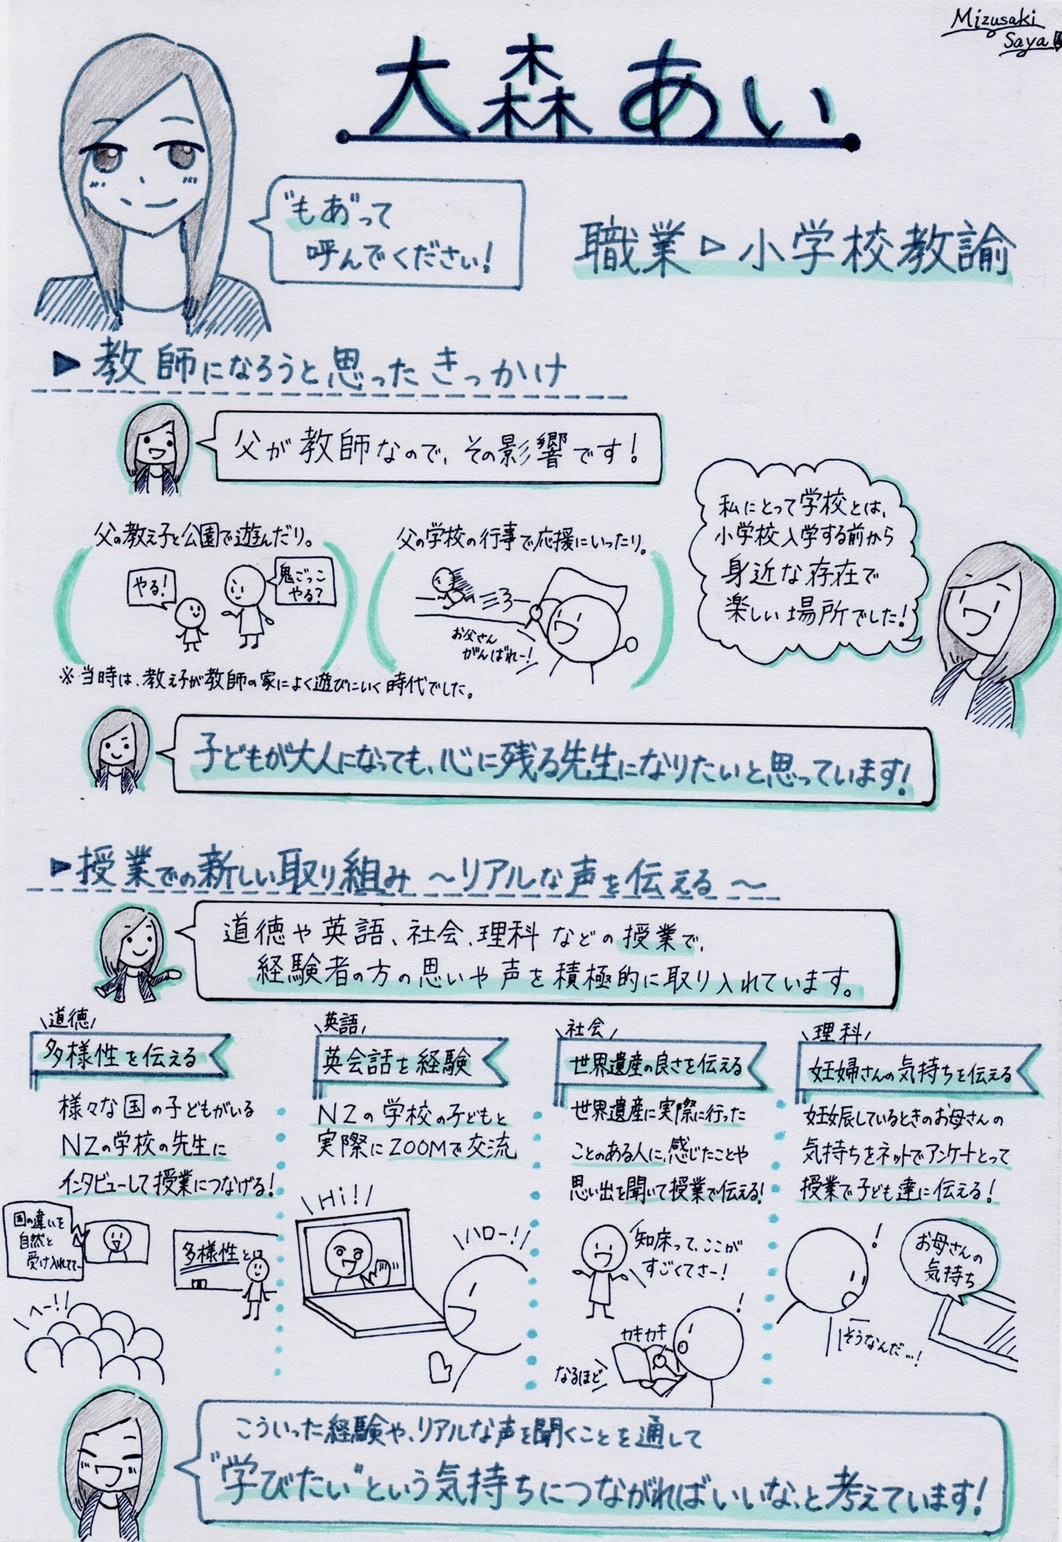 Mizusaki
Saya
大森あい
"もあ"って
呼んでください!
職業▷小学校教諭
▶教師になろうと思ったきっかけ
父が教師なので、その影響です!
父の教え子と公園で遊んだり。
やる!
鬼ごっこ
やる?
父の学校の行事で応援にいったり。
お父さん
がんばれー!
※当時は、教え子が教師の家によく遊びにいく時代でした。
私にとって学校とは、
小学校入学する前から
身近な存在で
楽しい場所でした!
子どもが大人になっても、心に残る先生になりたいと思っています!
▶授業での新しい取り組み ～リアルな声を伝える～
道徳や英語、社会、理科などの授業で、
経験者の方の思いや声を積極的に取り入れています。
\道徳/
多様性を伝える
様々な国の子どもがいる
NZの学校の先生に
インタビューして授業につなげる!
国の違いを
自然と
受け入れてて…
多様性とは
\へー!!/
\英語/
英会話を経験
NZの学校の子どもと
実際にZOOMで交流
\Hi!/
\ハロー!/
\社会/
世界遺産の良さを伝える
世界遺産に実際に行った
ことのある人に、感じたことや
思い出を聞いて授業で伝える!
知床って、ここが
すごくてさー!
カキカキ
なるほど
!
\理科/
妊婦さんの気持ちを伝える
妊娠しているときのお母さんの
気持ちをネットでアンケートとって
授業で子ども達に伝える!
!
お母さんの
気持ち
そうなんだ…!
こういった経験や、リアルな声を聞くことを通して
"学びたい"という気持ちにつながればいいな、と考えています!